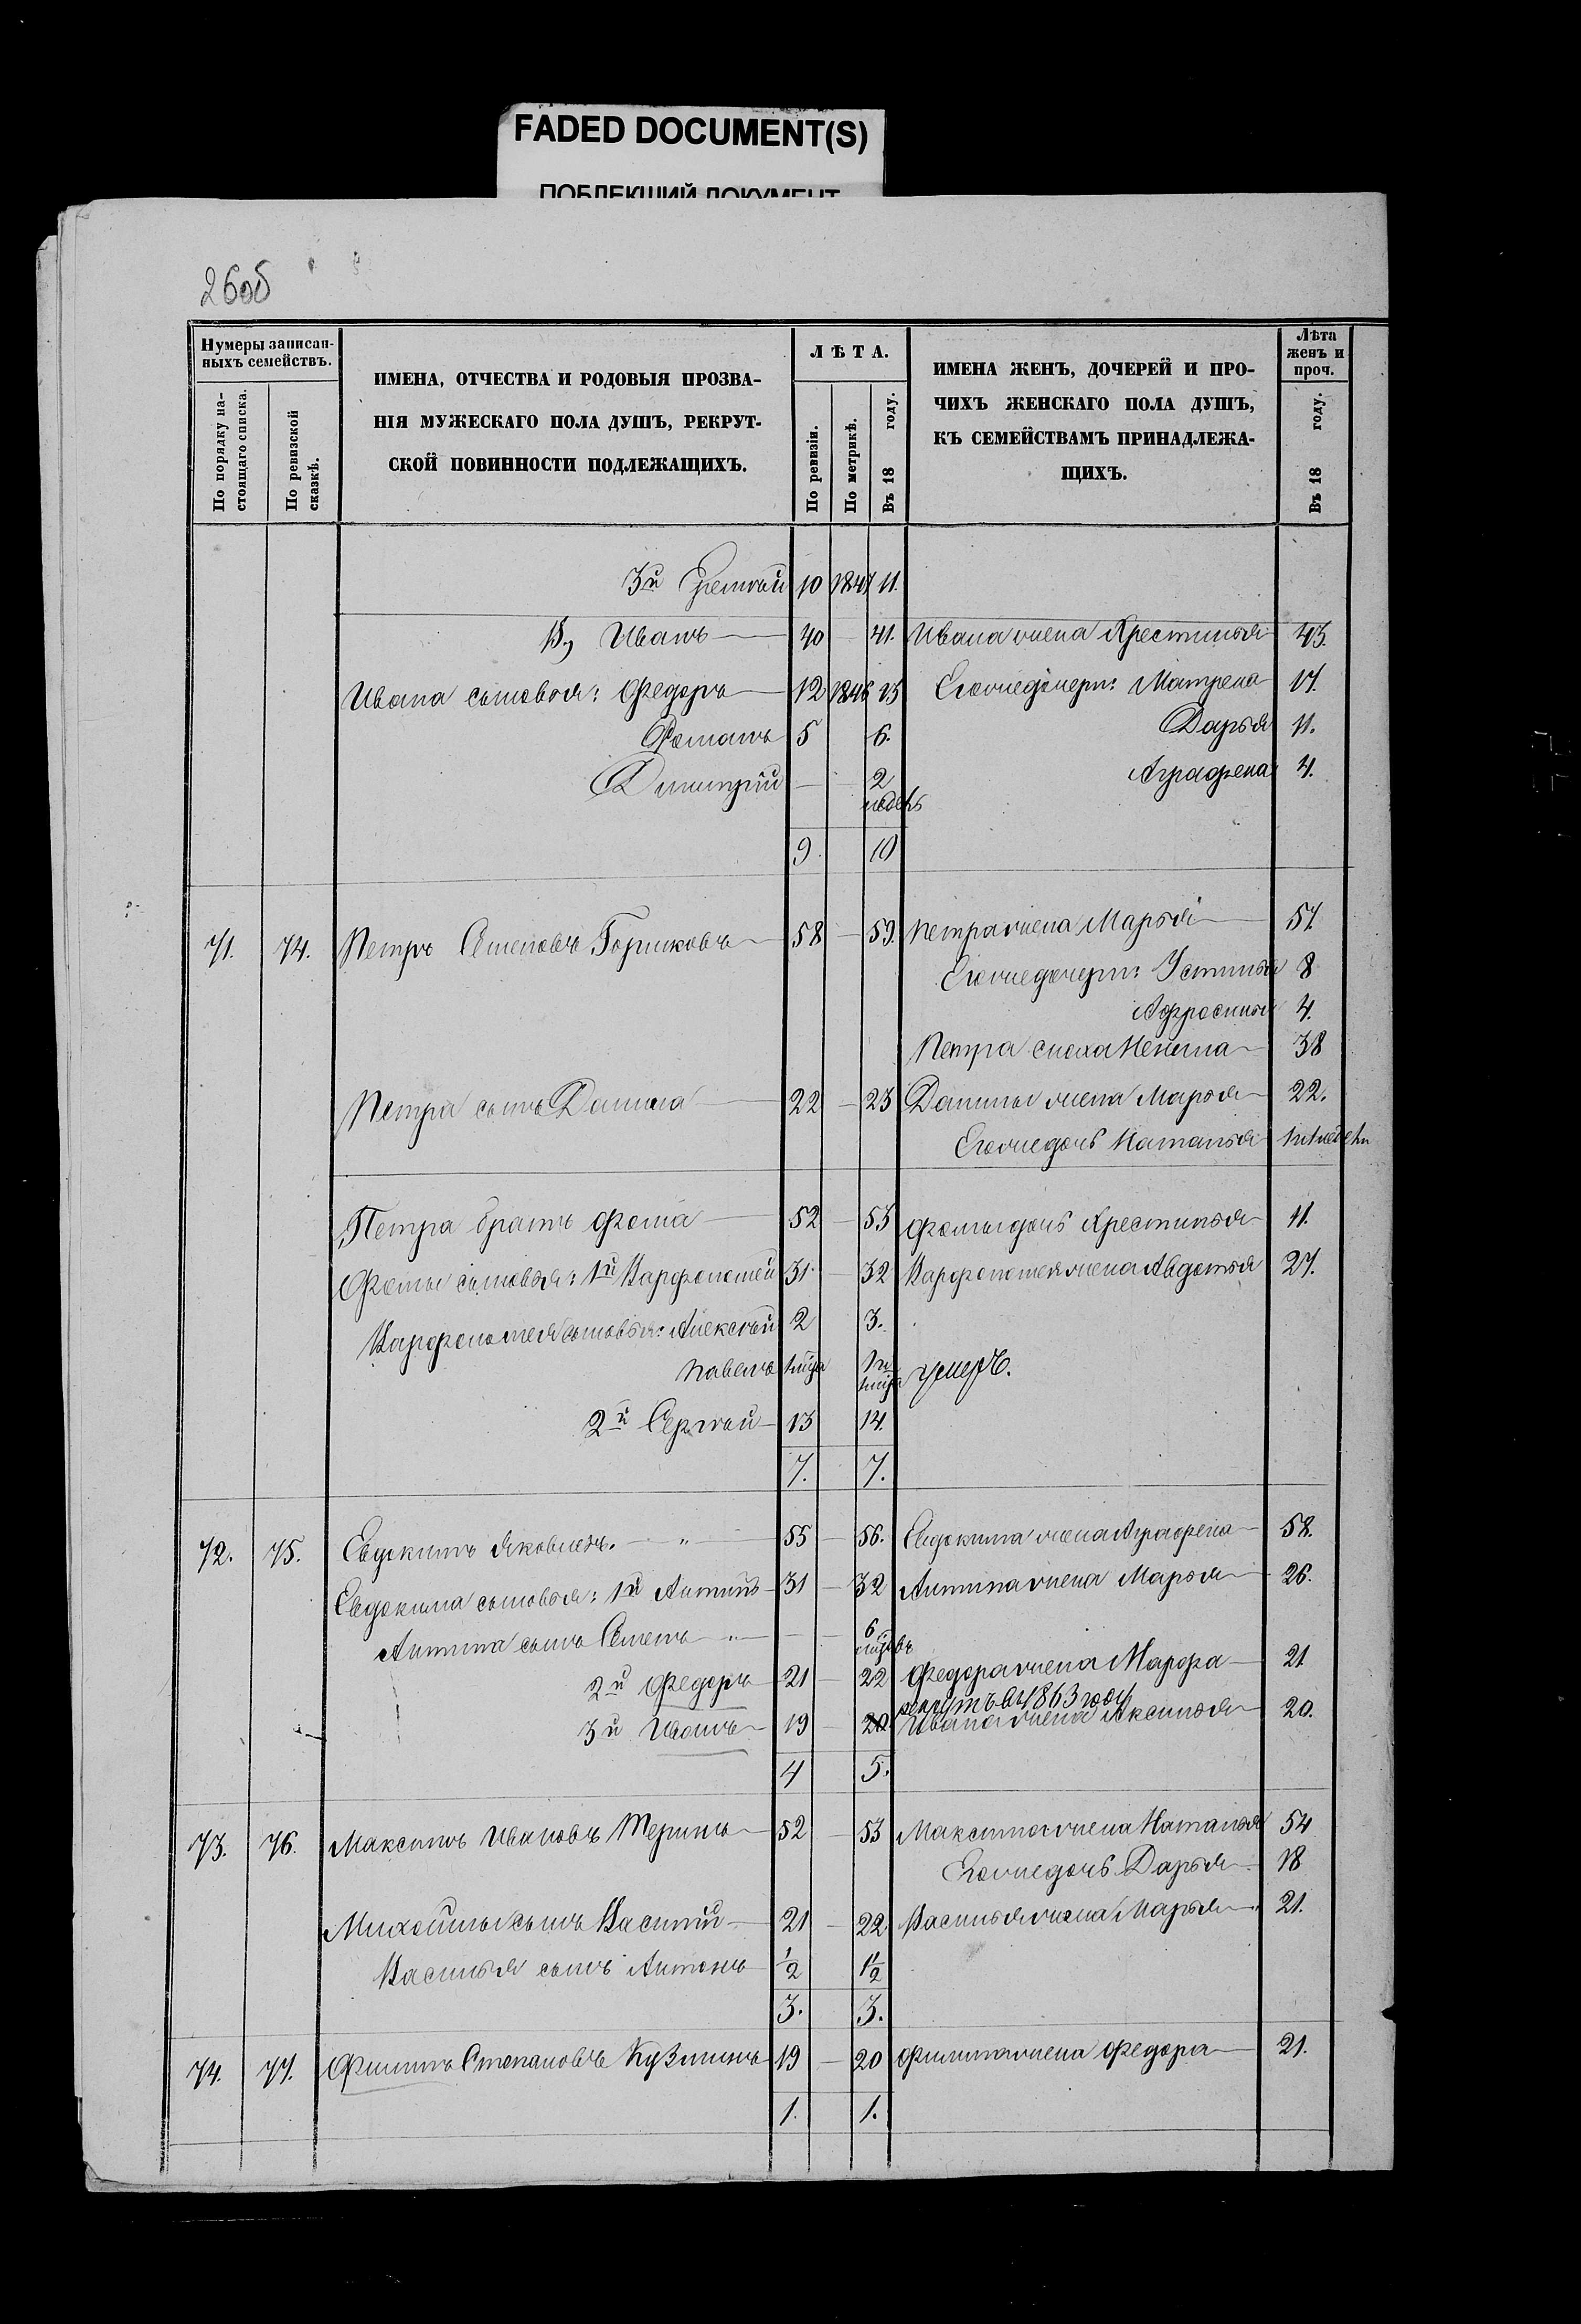 FADED DOCUMENT(S)
ПОБЛЕКШИЙ ДОКУМЕНТ
260б
Нумеры записан-
ныхъ семействъ.
По порядку на-
стоящаго списка.
По ревизской
сказкѣ.
ИМЕНА, ОТЧЕСТВА И РОДОВЫЯ ПРОЗВА-
НІЯ МУЖЕСКАГО ПОЛА ДУШЪ, РЕКРУТ-
СКОЙ ПОВИННОСТИ ПОДЛЕЖАЩИХЪ.
ЛѢТА.
По ревизіи.
По метрикѣ.
Въ 18 году.
ИМЕНА ЖЕНЪ, ДОЧЕРЕЙ И ПРО-
ЧИХЪ ЖЕНСКАГО ПОЛА ДУШЪ,
КЪ СЕМЕЙСТВАМЪ ПРИНАДЛЕЖА-
ЩИХЪ.
Лѣта
женъ и
проч.
Въ 18 году.
3й 10 1847 11.
В, Иванъ 40 41. Ивана жена Крестинья 43.
Ивана сыновья: Федоръ 12 1846 13 Егожедочери: Матрена 17.
Романъ 5 6. Дарья 11.
Дмитрій — — 2 Аграфена 4.
недѣл
9. 10
71. 74. Петръ Семеновъ Горшковъ 58 — 59. Петра жена Марья 57.
Егожедочери: Устинья 8
Афросинья 4.
Петра сноха Ненила 38
Петра сынъ Данила 22 — 23 Данилы жена Марья 22.
Егожедочь Наталья
Петра братъ Фома 52 — 53 Фомы дочь Крестинья 11.
Фомы сыновья: 1й Варфоломей 31 — 32 Варфоломея жена Авдотья 27.
Варфоломея сыновья: Алексѣй 2 3.
Павелъ умеръ.
2й Сергѣй 13 14.
7. 7.
72. 75. Евдокимъ Яковлевъ. — „ — 55 — 56. Евдокима жена Аграфена 58.
Евдокима сыновья: 1й Антипъ 31 — 32 Антипа жена Марья 26.
Антипа сынъ Семенъ — „ — — — 6
2й Федоръ 21 — 22 Федора жена Марфа 21
рекрутъ въ 1863 году
3й Иванъ 19 — 20 Ивана жена Аксинья 20.
4 5.
73. 76. Максимъ Ивановъ Теринъ 52 — 53 Максима жена Наталья 54
Егожедочь Дарья 18
сынъ Василій 21 — 22 Василья жена Марья 21.
Василья сынъ Антонъ 1/2 1 1/2
3. 3.
74. 77. Филипъ Степановъ Кузминъ 19 — 20 Филипа жена Федора 21.
1. 1.